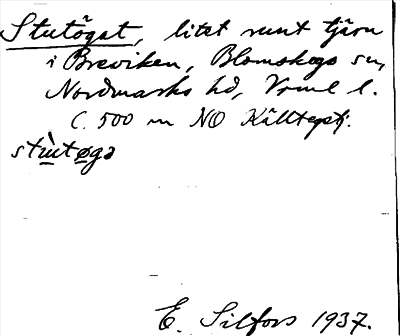 Stutögat, litet runt tjärn
i Breviken, Blomskogs sn,
Nordmarks hd, Vrml l.
C. 500 m NO Källtegstj.
stù̲tø̲gə
E. Silfors 1937.